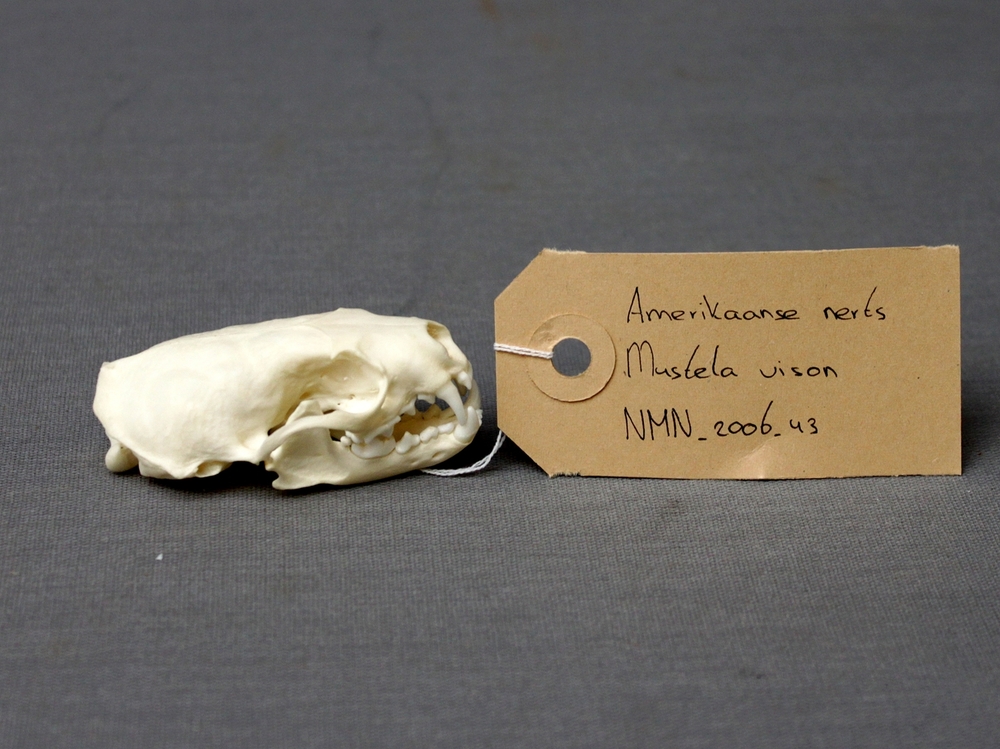 Amerikaanse nerts
Mustela vison
NMN_2006_43